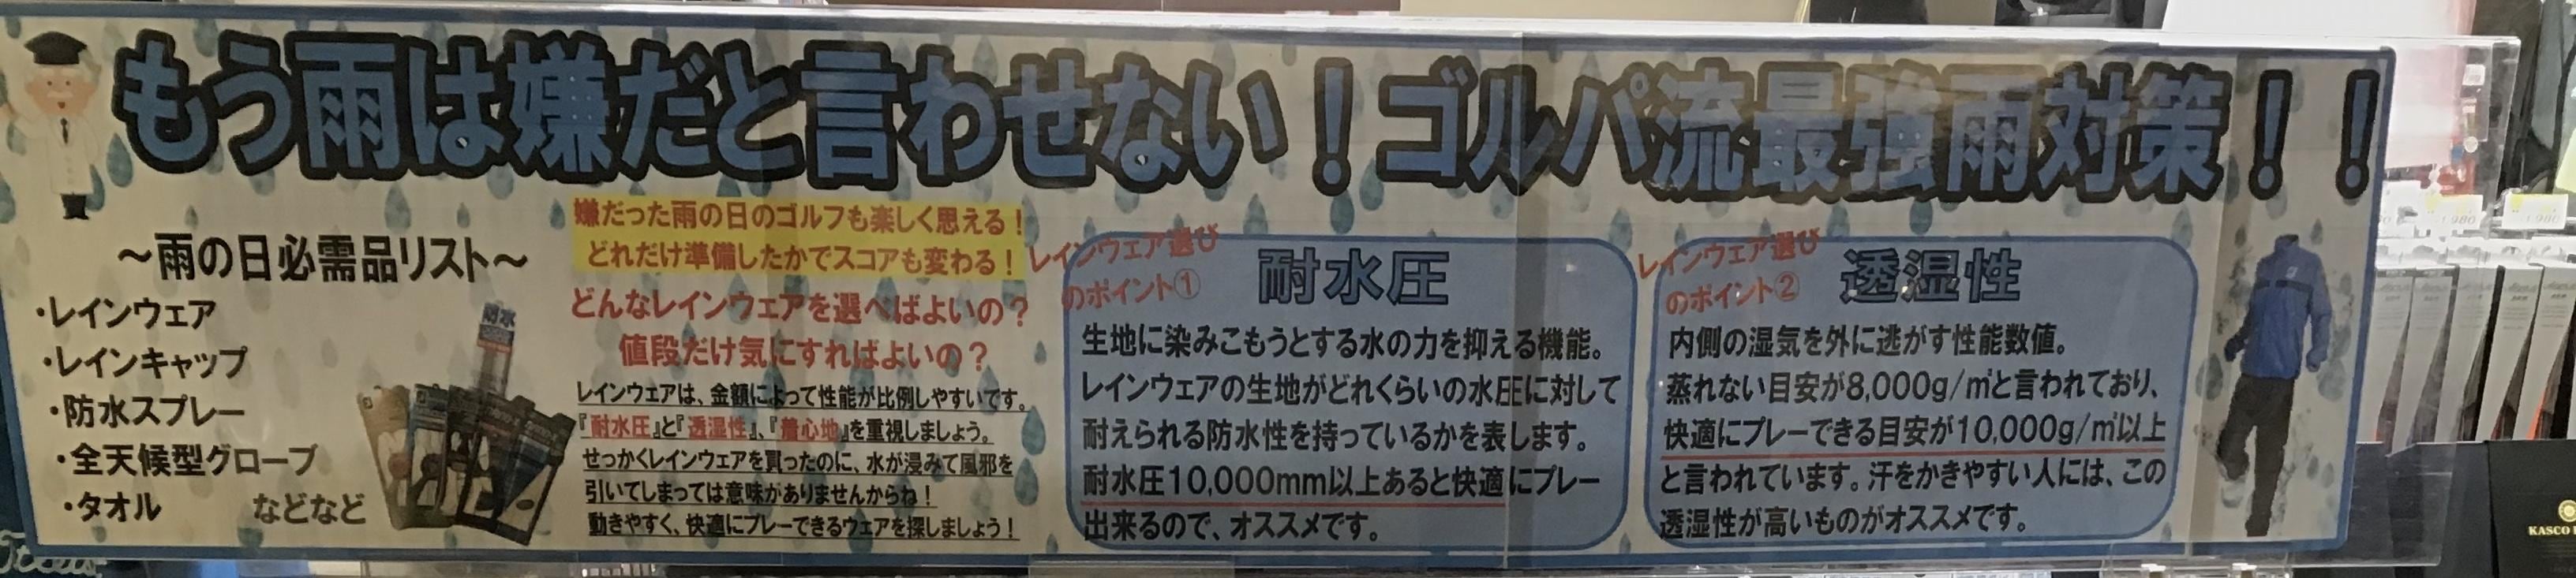 もう雨は嫌だと言わせない！ゴルパ流最強雨対策！！
～雨の日必需品リスト～
・レインウェア
・レインキャップ
・防水スプレー
・全天候型グローブ
・タオル　　　などなど
耐水
嫌だった雨の日のゴルフも楽しく思える！
どれだけ準備したかでスコアも変わる！
どんなレインウェアを選べばよいの？
値段だけ気にすればよいの？
レインウェアは、金額によって性能が比例しやすいです。
『耐水圧』と『透湿性』、『着心地』を重視しましょう。
せっかくレインウェアを買ったのに、水が浸みて風邪を
引いてしまっては意味がありませんからね！
動きやすく、快適にプレーできるウェアを探しましょう！
レインウェア選び
のポイント①
耐水圧
生地に染みこもうとする水の力を抑える機能。
レインウェアの生地がどれくらいの水圧に対して
耐えられる防水性を持っているかを表します。
耐水圧10,000mm以上あると快適にプレー
出来るので、オススメです。
レインウェア選び
のポイント②
透湿性
内側の湿気を外に逃がす性能数値。
蒸れない目安が8,000g/㎡と言われており、
快適にプレーできる目安が10,000g/㎡以上
と言われています。汗をかきやすい人には、この
透湿性が高いものがオススメです。
KASCO